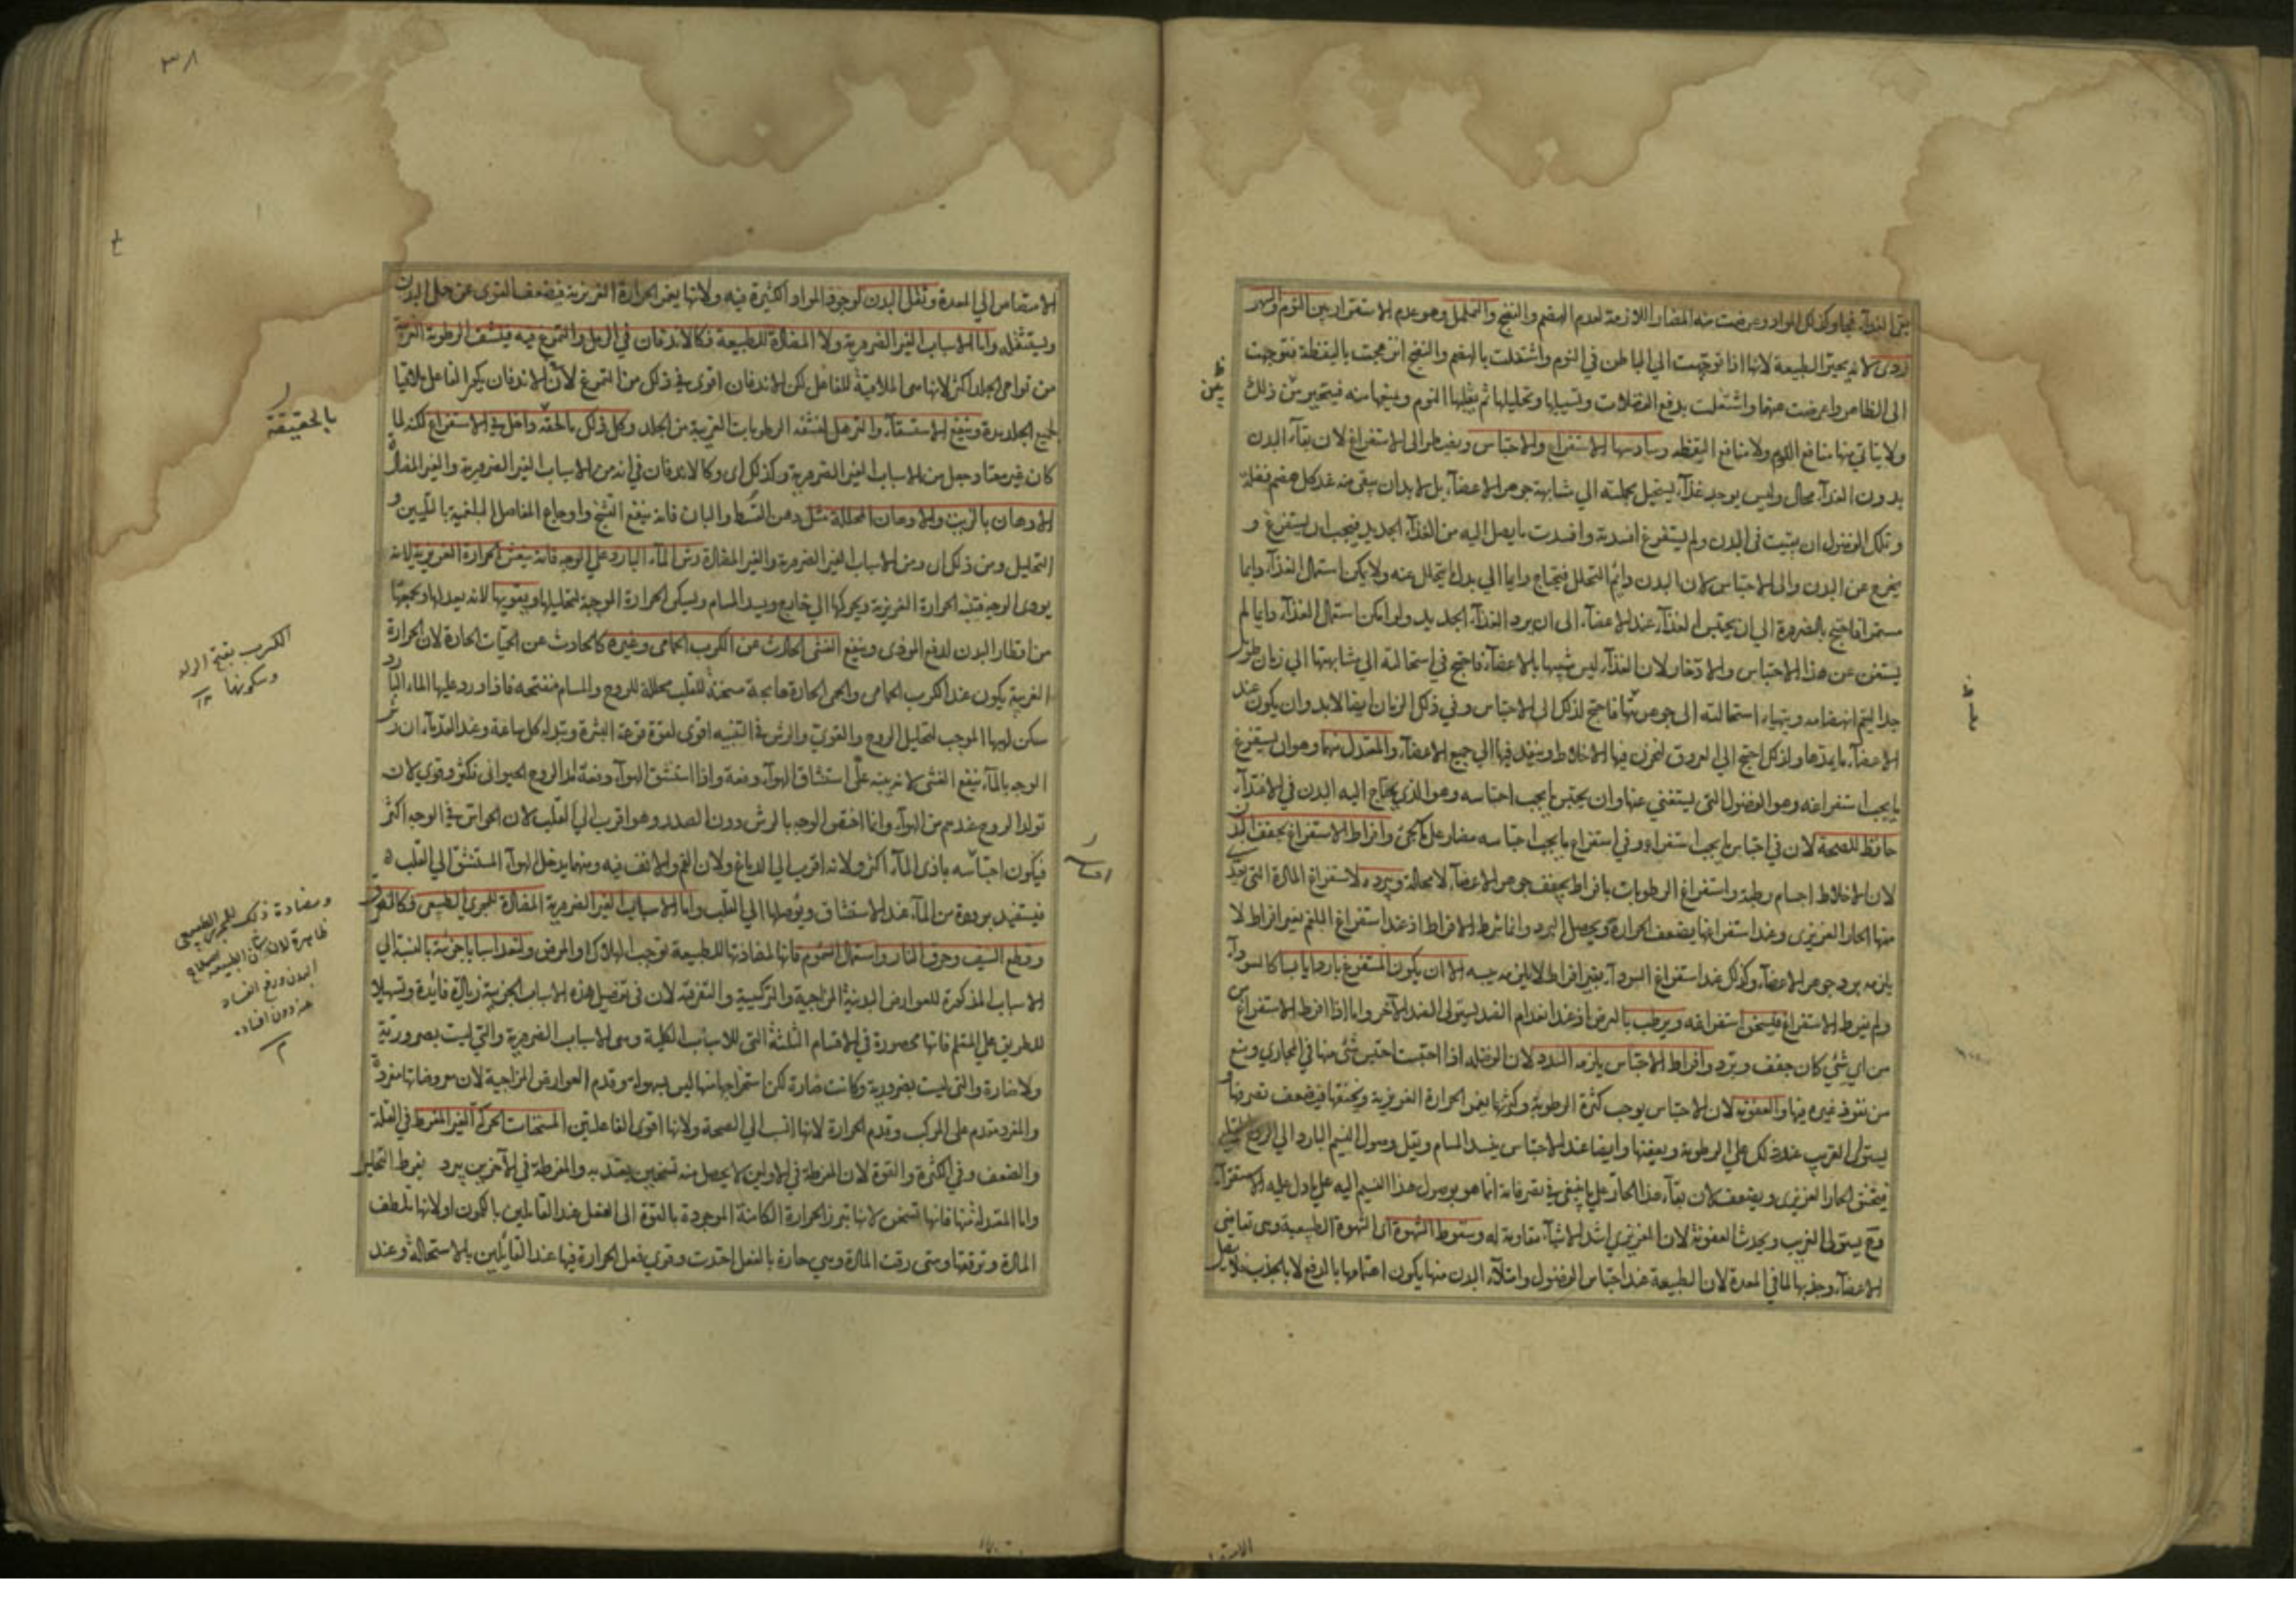 يبقى الغذاء فجا وكذلك المواد وعرضت منه المضار اللازمة لعدم الهضم والنضج والتململ وهو عدم الاستقرار بين النوم والسهر
ردى لانه يحير الطبيعة لانها اذا توجهت الى الباطن في النوم واشتغلت بالهضم والنضج انزعجت باليقظة فتوجهت
الى الظاهر واعرضت عنهما واشتغلت بدفع الفضلات وتسييلها وتحليلها ثم النوم فيتحير من ذلك
ولا يتاتى منها منافع النوم ولا منافع اليقظة وسادسها الاستفراغ والاحتباس ويضطر الى الاستفراغ لان بقاء البدن
بدون الغذاء محال وليس يوجد غذاء يستحيل بجملته الى مشابهة جوهر الاعضاء بل لابد ان يبقى منه عند كل هضم فضلة
وتلك الفضول ان بقيت في البدن ولم يستفرغ افسدته وافسدت ما يصل اليه من الغذاء الجديد فيجب ان يستفرغ و
يخرج عن البدن والى الاحتباس لان البدن دائم التحلل فيحتاج دايما الى بدل ما يتحلل عنه ولا يمكن استعمال الغذاء دايما
مستمرا فاحتيج بالضرورة الى ان يحتبس الغذاء عند الاعضاء الى ان يرد الغذاء الجديد ولو امكن استعمال الغذاء دايما لم
يستغن عن هذا الاحتباس والادخار لان الغذاء ليس شبيها بالاعضاء فاحتيج في استحالته الى مشابهتها الى زمان طويل
جدا ليتم انهضامه ويتهياء استحالته الى جوهرها فاحتيج لذلك الى الاحتباس وفي ذلك الزمان ايضا لابد وان يكون عند
الاعضاء ما يمدها ولذلك احتيج الى العروق لتخزن فيها الاخلاط وينفذ فيها الى جميع الاعضاء والمعتدل منهما وهو ان يستفرغ
ما يجب استفراغه وهو الفضول التي يستغنى عنها وان يحتبس ما يجب احتباسه وهو الذي يحتاج اليه البدن في الاغتذاء
حافظ للصحة لان في احتباس ما يجب استفراغه وفي استفراغ ما يجب احتباسه مضار على ما يجئ وافراط الاستفراغ يجفف البدن
لان الاخلاط اجسام رطبة واستفراغ الرطوبات بافراط يجفف جوهر الاعضاء لا محالة ويبرده لاستفراغ المادة التي
منها الحار الغريزي وعند استفراغها يضعف الحرارة ويحصل البرد وانما شرط الافراط اذ عند استفراغ البلغم بغير افراط لا
يلزمه برد جوهر الاعضاء وكذلك عند استفراغ السوداء بغير افراط لا يلزمه يبسه الا ان يكون المستفرغ باردا يابسا كالسوداء
ولم يفرط الاستفراغ فيسخن استفراغه ويرطب بالعرض اذ عند انعدام الضد يستولى الضد الآخر واما اذا افرط الاستفراغ
من اي شئ كان جفف وبرد وافراط الاحتباس يلزمه السدد لان الفضلة اذا احتبست احتبس شئ منها في المجاري ومنع
من نفوذ غيره فيها والعفونة لان الاحتباس يوجب كثرة الرطوبة وكثرتها يغمر الحرارة الغريزية ويخنقها فيضعف تصرفها
يستولى الغريب عند ذلك على الرطوبة ويعفنها وايضا عند الاحتباس ينسد المسام ويقل وصول النسيم البارد الى الروح
فيختنق الحار الغريزي ويضعف لان بقاء هذا الحار على ما ينبغي في تصرفاته انما هو بوصول هذا النسيم اليه على ما دل عليه الاستقراء
وح يستولى الغريب ويحدث العفونة لان الغريزي اشد الاشياء مقاومة له وسقوط الشهوة اى الشهوة الطبيعية وهى تقاضى
الاعضاء وجذبها لما في المعدة لان الطبيعة عند احتباس الفضول وامتلاء البدن منها يكون اهتمامها بالدفع لا بالجذب
الامتصاص الى المعدة وثقل البدن لوجود المواد الكثيرة فيه ولانها يغمر الحرارة الغريزية فيضعف القوى عن حمل البدن
ويستثقله واما الاسباب الغير الضرورية ولا المضادة للطبيعة فكالاندفان في الرمل والتمرغ فيه فينشف الرطوبة الغريبة
من نواحي الجلد اكثر لانها هى الملاقية للفاعل لكن الاندفان اقوى في ذلك من التمرغ لان الاندفان يكمر الفاعل ملاقيا
لجميع الجلد مدة وينفع الاستسقاء والترهل لنشفه الرطوبات الغريبة من الجلد وكل ذلك بالحقة داخل في الاستفراغ لكنه لما
كان غير معتاد جعل من الاسباب الغير الضرورية وكذلك اى وكالاندفان في انه من الاسباب الغير الضرورية والغير المضادة
الادهان بالزيت والادهان المحللة مثل دهن القسط والبان فانه ينفع التشنج واوجاع المفاصل البلغمية بالتليين و
التحليل ومن ذلك اى ومن الاسباب الغير الضرورية والغير المضادة رش الماء البارد على الوجه فانه ينعش الحرارة الغريزية لانه
يوذى الوجه فتنبه الحرارة الغريزية ويحركها الى خارج ويسد المسام ويسكن الحرارة الموجبة لتحليلها ويقويها لانه يعدلها ويجمعها
من اقطار البدن لدفع الموذى وينفع الغشى الحادث من الكرب الحمامى وغيره كالحادث عن الحميات الحادة لان الحرارة
الغريبة يكون عند الكرب الحمامى والحمى الحادة هايجة مسخنة للقلب محللة للروح والمسام منفتحة فاذا ورد عليها الماء البارد
سكن لهيبها الموجب لتحليل الروح والقوى والرش في التنبيه اقوى لقوة قرعة البشرة وتبدله كل ساعة وعند القدماء ان رش
الوجه بالماء ينفع الغشى لانه ينبه على استنشاق الهواء دفعة واذا استنشق الهواء دفعة تولد الروح الحيوانى فكثر وقوى لان
تولد الروح عندهم من الهواء وانما اختص الوجه بالرش دون الصدر وهو اقرب الى القلب لان الحواس في الوجه اكثر
فيكون احساسه باذى الماء اكثر ولانه اقرب الى الدماغ ولان الفم والانف فيه ومنهما يدخل الهواء المستنشق الى القلب
فيستفيد برودة من الماء عند الاستنشاق ويوصلها الى القلب واما الاسباب الغير الضرورية المضادة للمجرى الطبيعى فكالغرق
وقطع السيف وحرق النار واستعمال السموم فانها لمضادتها للطبيعة توجب الهلاك او المرض ولنعد اسبابا جزئية بالنسبة الى
الاسباب المذكورة للعوارض البدنية المزاجية والتركيبية والتفرقة لان في تفصيل هذه الاسباب الجزئية زيادة فائدة وتسهيلا
للطريق على المتعلم فانها محصورة في الاقسام الثلثة التى للاسباب الكلية وهى الاسباب الضرورية والتي ليست بضرورية
ولا ضارة والتى ليست بضرورية وكانت ضارة لكن استخراجها منها ليس بسهولة وقدم العوارض المزاجية لان معروضاتها مفردة
والمفرد مقدم على المركب وقدم الحرارة لانها انسب الى الصحة ولانها اقوى الفاعلتين المسخنات الحركة الغير المفرطة في القلة
والضعف وفي الكثرة والقوة لان المفرطة في الاولين لا يحصل منه تسخين يعتد به والمفرطة في الآخرين يبرد بفرط التحليل
واما المعتدلة منها فانها تسخن لانها تبرز الحرارة الكامنة الموجودة بالقوة الى الفعل عند القائلين بالكمون او لانها تلطف
المادة وترققها ومتى رقت المادة وهى حارة بالفعل احتدت وقوى فعل الحرارة فيها عند القائلين بالاستحالة وعند
٣٨
بالحقيقة
الكرب بفتح الراء
وسكونها ١٢
ومضادة ذلك للمجرى الطبيعى
ظاهرة لان شان الطبيعة صلاح
البدن ودفع الفساد
عنه دون افساده